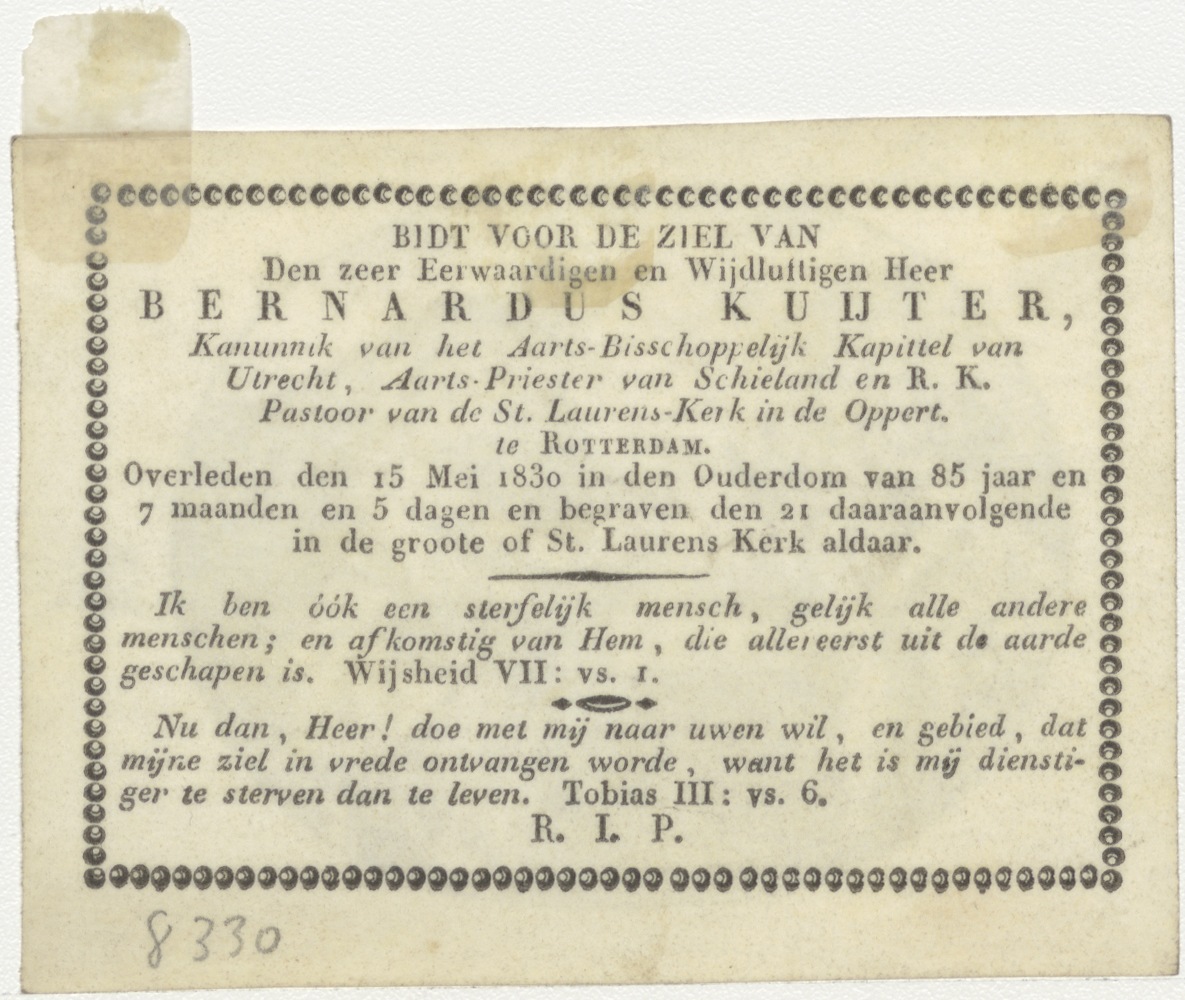 BIDT VOOR DE ZIEL VAN
Den zeer Eerwaardigen en Wijdluftigen Heer
BERNARDUS KUIJTER,
Kanunnik van het Aarts-Bisschoppelijk Kapittel van
Utrecht, Aarts-Priester van Schieland en R. K.
Pastoor van de St. Laurens-Kerk in de Oppert.
te ROTTERDAM.
Overleden den 15 Mei 1830 in den Ouderdom van 85 jaar en
7 maanden en 5 dagen en begraven den 21 daaraanvolgende
in de groote of St. Laurens Kerk aldaar.
Ik ben óók een sterfelijk mensch, gelijk alle andere
menschen; en afkomstig van Hem, die allereerst uit de aarde
geschapen is. Wijsheid VII: vs. 1.
Nu dan, Heer! doe met mij naar uwen wil, en gebied, dat
mijne ziel in vrede ontvangen worde, want het is mij diensti-
ger te sterven dan te leven. Tobias III: vs. 6.
R. I. P.
8330